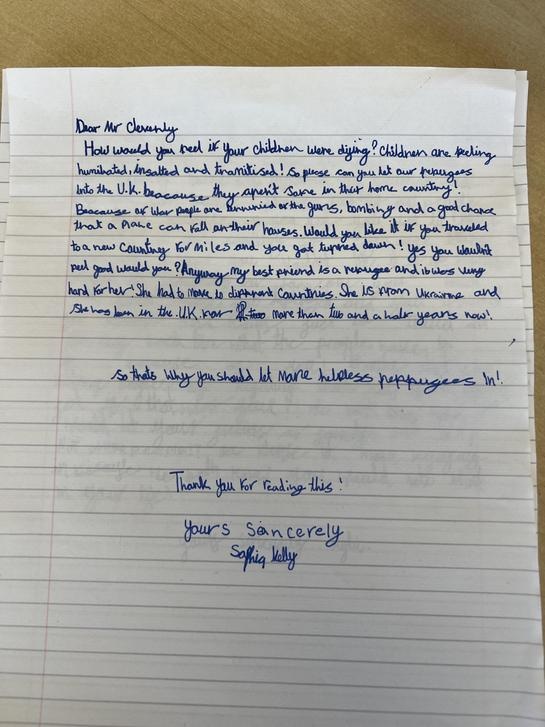 Dear Mr Cleverly
How would you feel if your children were diying? Children are feeling
humiliated, insalted and tramitised! So please can you let our refugees
into the U.K. beacause they arent safe in their home country!
Beacause of War people are terrified of the guns, bombing and a good chance
that a Plane can fall on their houses. Would you like it if you traveled
to a new country for miles and you got turned down! yes you wouldn't
feel good would you? Anyway my best friend is a refugee and it was very
hard for her! She had to move to different Countries. She is from Ukrairne and
she has been in the U.K. for more than two and a half years now!
so thats why you should let more helpless refugees in!
Thank you for reading this!
yours sancerely
Sophia Kelly